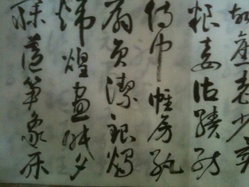 故舊老少異
糧妾御績紡
侍巾帷房紈
扇員潔銀燭
煒煌晝眠夕
寐藍筍象床